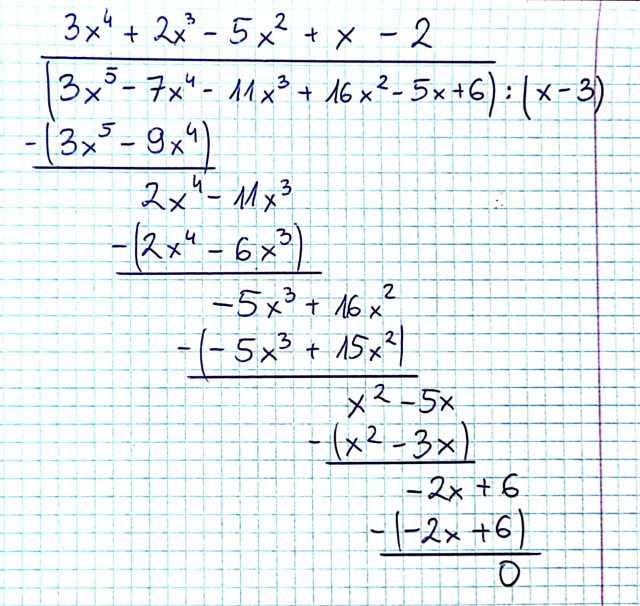 3x⁴ + 2x³ - 5x² + x - 2
(3x⁵ - 7x⁴ - 11x³ + 16x² - 5x + 6) : (x - 3)
-(3x⁵ - 9x⁴)
2x⁴ - 11x³
-(2x⁴ - 6x³)
-5x³ + 16x²
-(-5x³ + 15x²)
x² - 5x
-(x² - 3x)
-2x + 6
-(-2x + 6)
0